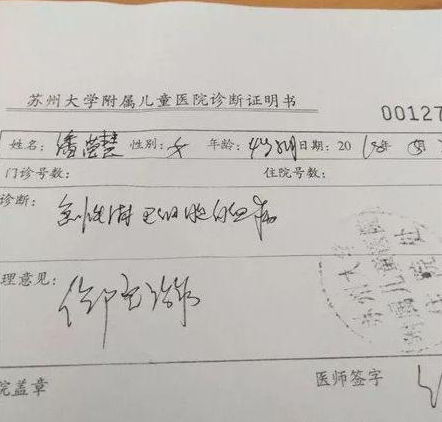 苏州大学附属儿童医院诊断证明书
00127
姓名: 潘莹慧 性别: 女 年龄: 日期: 2018年
门诊号数: 住院号数:
诊断: 急性淋巴细胞白血病
理意见:
苏州大学
附属儿童医院
院盖章 医师签字